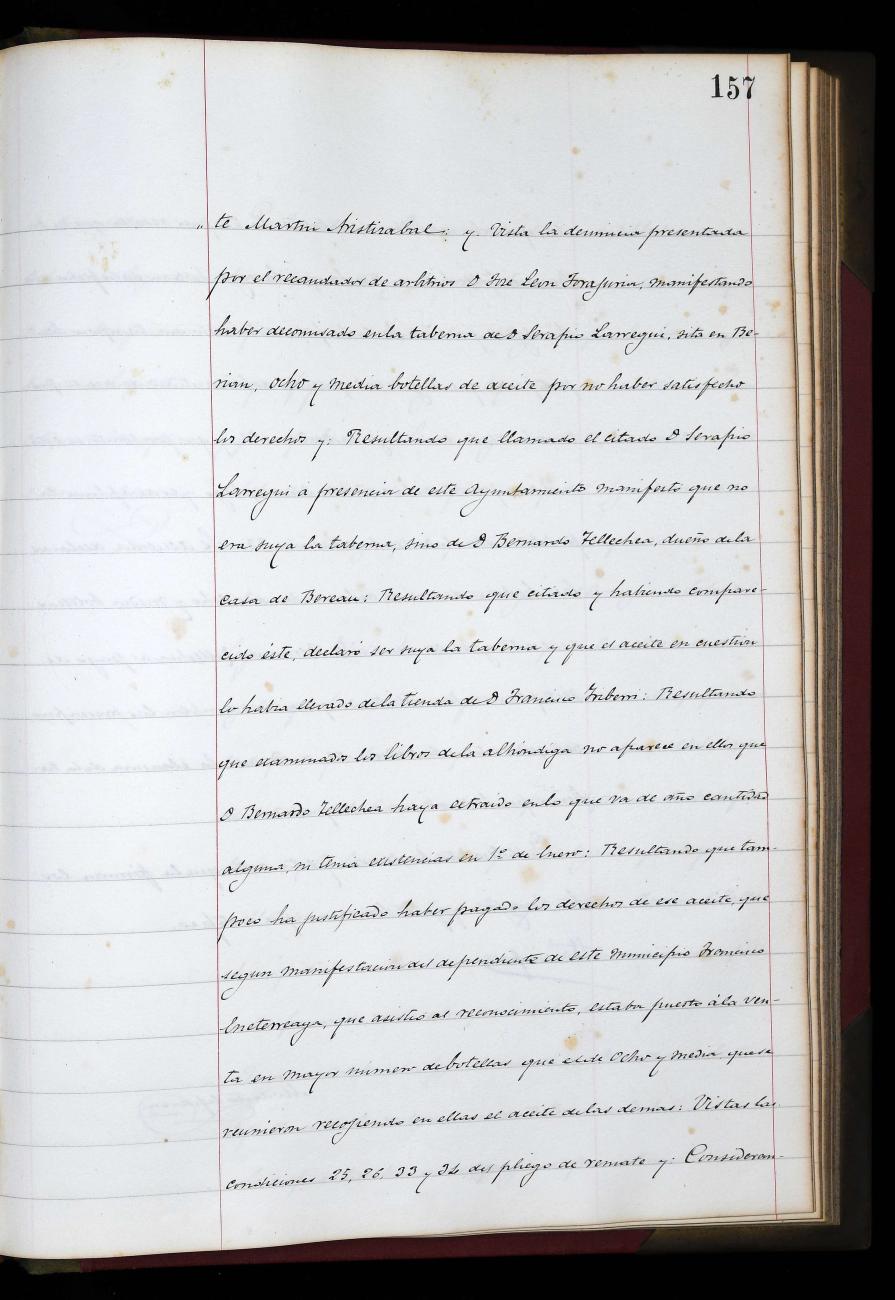 157
„ te Martin Aristizabal: y. Vista la denuncia presentada
por el recaudador de arbitrios D José Leon
manifestando
haber decomisado en la taberna de D Serapio Larregui, sita en Be-
rian, Ocho y media botellas de aceite por no haber satisfecho
los derechos y: Resultando que llamado el citado D Serapio
Larregui a presencia de este Ayuntamiento manifestó que no
era suya la taberna, sino de D Bernardo Tellechea, dueño de la
casa de Bereau: Resultando que citado y habiendo compare-
cido éste, declaró ser suya la taberna y que el aceite en cuestion
lo habia llevado de la tienda de D Francisco Iriberri: Resultando
que examinados los libros de la alhóndiga no aparece en ellos que
D Bernardo Tellechea haya extraido en lo que va de año cantidad
alguna, ni tenia existencias en 1º de Enero: Resultando que tam-
poco ha justificado haber pagado los derechos de ese aceite, que
segun manifestacion del dependiente de este Municipio Francisco
que asistió al reconocimiento, estaba puesto á la ven-
ta en mayor numero de botellas que el de Ocho y media que se
reunieron recogiendo en ellas el aceite de las demas: Vistas las
condiciones 25, 26, 33 y 34 del pliego de remate y: Consideran-